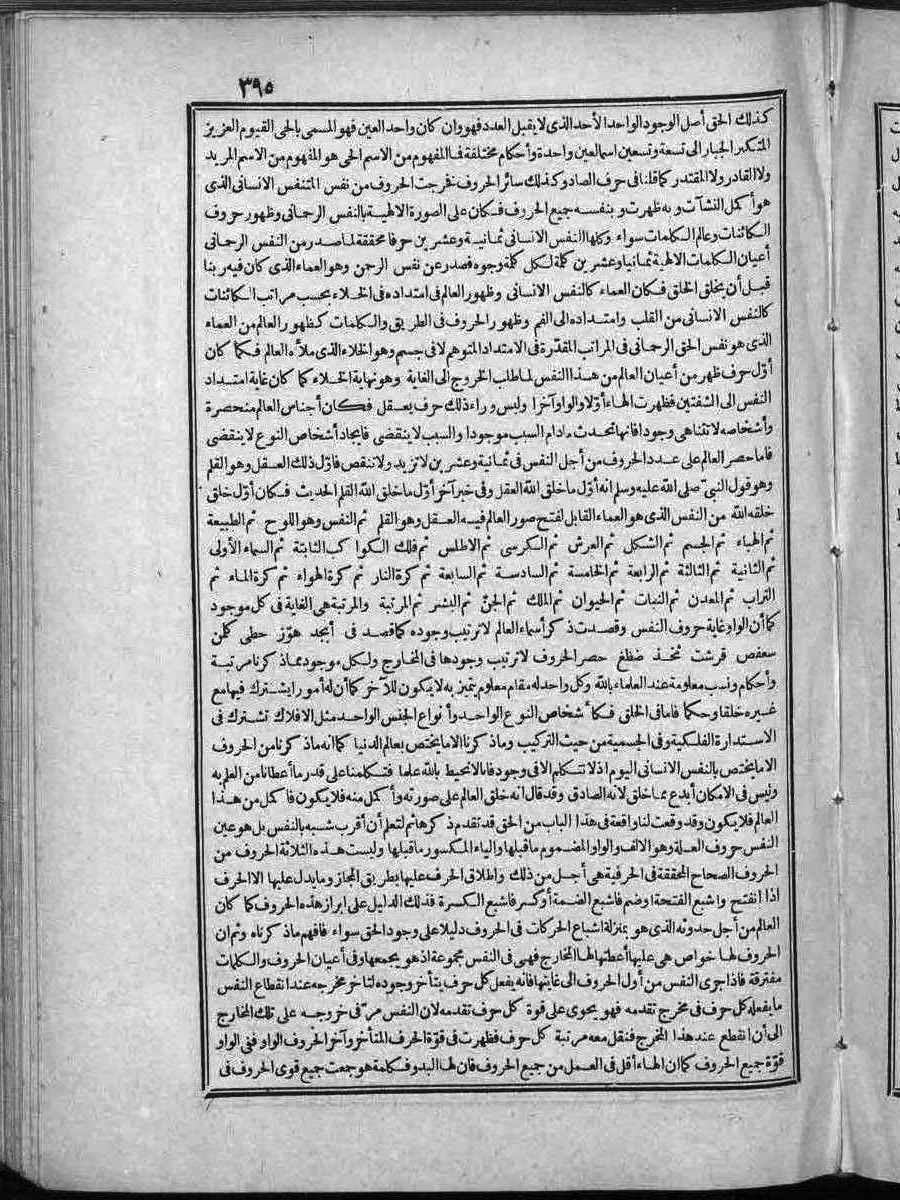 ٣٩٥
كذلك الحق أصل الوجود الواحد الأحد الذى لا يقبل العدد فهو وان كان واحد العين فهو المسمى بالحى القيوم العزيز
المتكبر الجبار الى تسعة وتسعين اسما لعين واحدة وأحكام مختلفة فما المفهوم من الاسم الحى هو المفهوم من الاسم المريد
ولا القادر ولا المقتدر كما قلنا فى حرف الصاد وكذلك سائر الحروف نخرجت الحروف من نفس المتنفس الانسانى الذى
هو أكمل النشآت وبه ظهرت وبنفسه جميع الحروف فكان على الصورة الالهية بالنفس الرحمانى وظهور حروف
الكائنات وعالم الكلمات سواء وكلها للنفس الانسانى ثمانية وعشرين حرفا محققة لما صدر من النفس الرحمانى
أعيان الكلمات الالهية ثمانيا وعشرين كلمة لكل كلمة وجوه فصدر عن نفس الرحمن وهو العماء الذى كان فيه ربنا
قبل أن يخلق الخلق فكان العماء كالنفس الانسانى وظهور العالم فى امتداده فى الخلاء بحسب مراتب الكائنات
كالنفس الانسانى من القلب وامتداده الى الفم وظهور الحروف فى الطريق والكلمات كظهور العالم من العماء
الذى هو نفس الحق الرحمانى فى المراتب المقدّرة فى الامتداد المتوهم لا فى جسم وهو الخلاء الذى ملأه العالم فكما كان
أوّل حرف ظهر من أعيان العالم من هذا النفس لما طلب الخروج الى الغاية وهو نهاية الخلاء كما كان غاية امتداد
النفس الى الشفتين فظهرت الهاء أوّلا والواو آخرا وليس وراء ذلك حرف يعقل فكان أجناس العالم منحصرة
وأشخاصه لا تتناهى وجودا فانها تحدث مادام السبب موجودا والسبب لا ينقضى فايجاد أشخاص النوع لا ينقضى
فما حصر العالم على عدد الحروف من أجل النفس فى ثمانية وعشرين لا تزيد ولا تنقص فاوّل ذلك العقل وهو القلم
وهو قول النبىّ صلى الله عليه وسلم انه أوّل ما خلق الله العقل وفى خبر آخر أوّل ما خلق الله القلم الحديث فكان أوّل خلق
خلقه الله من النفس الذى هو العماء القابل لفتح صور العالم فيه العقل وهو القلم ثم النفس وهو اللوح ثم الطبيعة
ثم الهباء ثم الجسم ثم الشكل ثم العرش ثم الكرسى ثم الاطلس ثم فلك الكواكب الثابتة ثم السماء الأولى
ثم الثانية ثم الثالثة ثم الرابعة ثم الخامسة ثم السادسة ثم السابعة ثم كرة النار ثم كرة الهواء ثم كرة الماء ثم
التراب ثم المعدن ثم النبات ثم الحيوان ثم الملك ثم الجنّ ثم البشر ثم المرتبة والمرتبة هى الغاية فى كل موجود
كما أن الواو غاية حروف النفس وقصدت ذكر أسماء العالم لا ترتيب وجوده كما قصد فى أبجد هوّز حطى كلمن
سعفص قرشت ثخذ ضظغ حصر الحروف لا ترتيب وجودها فى المخارج ولكل موجود مما ذكرنا مرتبة
وأحكام ونسب معلومة عند العلماء بالله وكل واحد له مقام معلوم يتميز به لا يكون للآخر كما أن له أمورا يشترك فيها مع
غيره خلقا وحكما فاما فى الخلق فكأشخاص النوع الواحد وأنواع الجنس الواحد مثل الافلاك تشترك فى
الاستدارة الفلكية وفى الجسمية من حيث التركيب وما ذكرنا الا ما يختص بعالم الدنيا كما انه ما ذكرنا من الحروف
الا ما يختص بالنفس الانسانى اليوم اذ لا نتكلم الا فى وجود فاما لا نحيط بالله علما فتكلمنا على قدر ما أعطانا من العلم به
وليس فى الامكان أبدع مما خلق لانه الصادق وقد قال انه خلق العالم على صورته وأكمل منه فلا يكون فاكمل من هذا
العالم فلا يكون وقد وقعت لنا واقعة فى هذا الباب من الحق قد تقدم ذكرها ثم لتعلم أن أقرب شبه بالنفس بل هو عين
النفس حروف العلة وهو الالف والواو المضموم ما قبلها والياء المكسور ما قبلها وليست هذه الثلاثة الحروف من
الحروف الصحاح المحققة فى الحرفية هى أجل من ذلك واطلاق الحرف عليها بطريق المجاز وما يدل عليها الا الحرف
اذا انفتح واشبع الفتحة أو ضم فاشبع الضمة أو كسر فاشبع الكسرة فذلك الدليل على ابراز هذه الحروف كما كان
العالم من أجل حدوثه الذى هو بمنزلة اشباع الحركات فى الحروف دليلا على وجود الحق سواء فافهم ماذكرناه وثم ان
الحروف لها خواص هى عليها أعطتها لها المخارج فهى فى النفس مجموعة اذ هو يجمعها وفى أعيان الحروف والكلمات
مفترقة فاذا جرى النفس من أول الحروف الى غايتها فانه يفعل كل حرف يتأخر وجوده لتأخر مخرجه عند انقطاع النفس
ما يفعله كل حرف فى مخرج تقدمه فهو يحوى على قوة كل حرف تقدمه لان النفس مرّ فى خروجه على تلك المخارج
الى أن انقطع عند هذا المخرج فنقل معه مرتبة كل حرف فظهرت فى قوّة الحرف المتأخر وآخر الحروف الواو ففى الواو
قوّة جميع الحروف كما ان الهاء أقل فى العمل من جميع الحروف فان لها البدو فكلمة هو جمعت جميع قوى الحروف فى